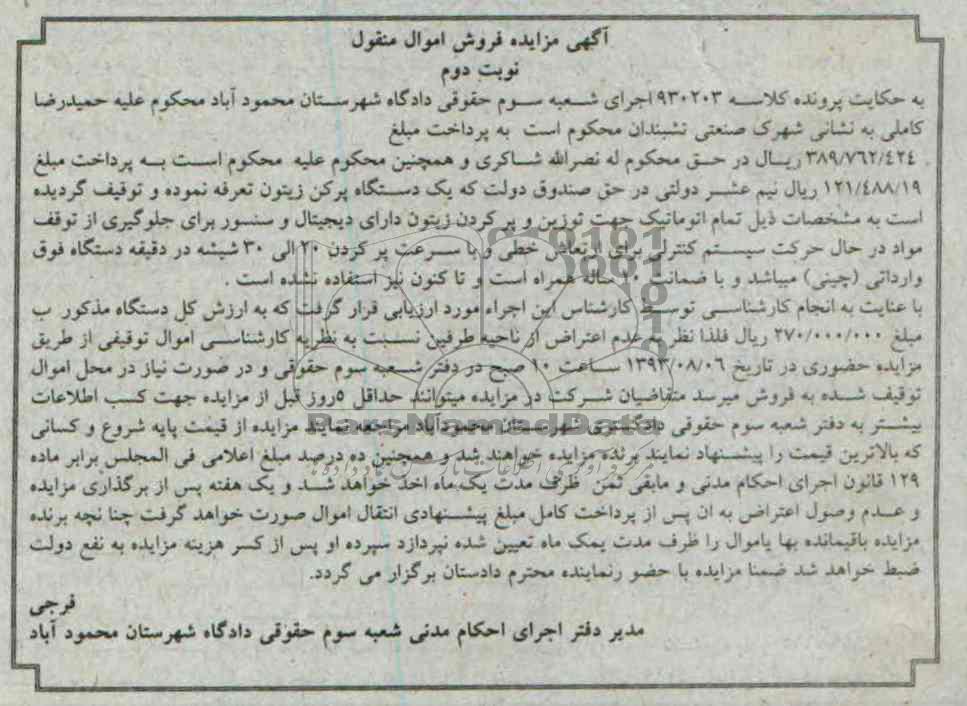 آگهی مزایده فروش اموال منقول
نوبت دوم
به حکایت پرونده کلاسه ۹۳۰۲۰۳ اجرای شعبه سوم حقوقی دادگاه شهرستان محمود آباد محکوم علیه حمیدرضا
کاملی به نشانی شهرک صنعتی تشبندان محکوم است به پرداخت مبلغ
۳۸۹/۷۶۲/٤۲٤ ریال در حق محکوم له نصرالله شاکری و همچنین محکوم علیه محکوم است به پرداخت مبلغ
۱۲۱/٤۸۸/۱۹ ریال نیم عشر دولتی در حق صندوق دولت که یک دستگاه پرکن زیتون تعرفه نموده و توقیف گردیده
است به مشخصات ذیل تمام اتوماتیک جهت توزین و پر کردن زیتون دارای دیجیتال و سنسور برای جلوگیری از توقف
مواد در حال حرکت سیستم کنترلی برای ارتعاش خطی و با سرعت پر کردن ۲۰ الی ۳۰ شیشه در دقیقه دستگاه فوق
وارداتی (چینی) میباشد و با ضمانت ۱۰ ساله همراه است و تا کنون نیز استفاده نشده است .
با عنایت به انجام کارشناسی توسط کارشناس این اجراء مورد ارزیابی قرار گرفت که به ارزش کل دستگاه مذکور ب
مبلغ ۲۷۰/۰۰۰/۰۰۰ ریال فلذا نظر به عدم اعتراض از ناحیه طرفین نسبت به نظریه کارشناسی اموال توقیفی از طریق
مزایده حضوری در تاریخ ۱۳۹۳/۰۸/۰٦ ساعت ۱۰ صبح در دفتر شعبه سوم حقوقی و در صورت نیاز در محل اموال
توقیف شده به فروش میرسد متقاضیان شرکت در مزایده میتوانند حداقل ٥روز قبل از مزایده جهت کسب اطلاعات
بیشتر به دفتر شعبه سوم حقوقی دادگستری شهرستان محمودآباد مراجعه نمایند مزایده از قیمت پایه شروع و کسانی
که بالاترین قیمت را پیشنهاد نمایند برنده مزایده خواهند شد و همچنین ده درصد مبلغ اعلامی فی المجلس برابر ماده
۱۲۹ قانون اجرای احکام مدنی و مابقی ثمن ظرف مدت یک ماه اخذ خواهد شد و یک هفته پس از برگذاری مزایده
و عدم وصول اعتراض به ان پس از پرداخت کامل مبلغ پیشنهادی انتقال اموال صورت خواهد گرفت چنا نچه برنده
مزایده باقیمانده بها یاموال را ظرف مدت یمک ماه تعیین شده نپردازد سپرده او پس از کسر هزینه مزایده به نفع دولت
ضبط خواهد شد ضمنا مزایده با حضو رنماینده محترم دادستان برگزار می گردد.
فرجی
مدیر دفتر اجرای احکام مدنی شعبه سوم حقوقی دادگاه شهرستان محمود آباد
ParsNamadData